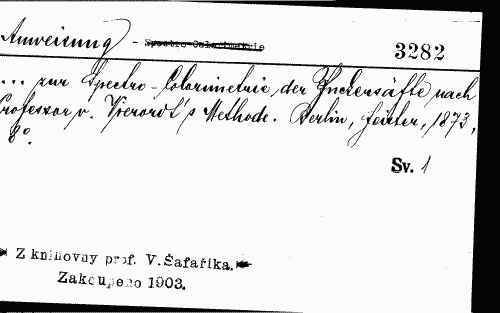 Anweisung - Spectro-Colorimetrie
3282
... zur Spectro-Colorimetrie der Zuckersäfte nach
Professor v. Vierordt's Methode. Berlin, 1873,
8°.
Sv. 1
Z knihovny prof. V. Šafaříka.
Zakoupeno 1903.